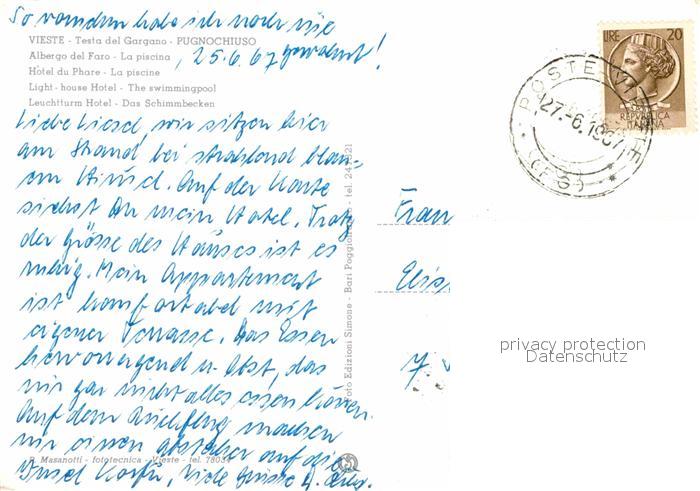 So vornehm habe ich noch nie
VIESTE - Testa del Gargano - PUGNOCHIUSO
, 25.6.67 gewohnt!
Albergo del Faro - La piscina
Hotel du Phare - La piscine
Light-house Hotel - The swimmingpool
Leuchtturm Hotel - Das Schimmbecken
Liebe Liesel, wir sitzen hier
am Strand bei strahlend blau-
em Himmel. Auf der Karte
siehst Du mein Hotel. Trotz
der Grösse des Hauses ist es
ruhig. Mein Appartement
ist komfortabel mit
eigener Terrasse. Das Essen
hervorragend u. Obst, das
wir gar nicht alles essen können.
Auf dem Rückflug machen
wir einen Abstecher auf die
Insel Korfu, Viele Grüsse
R. Masanotti - fototecnica - Vieste - tel. 78034
Foto Edizioni Simone - Bari Poggiofranco - tel.
LIRE 20
REPUBBLICA
ITALIANA
POSTE VIESTE
27.-6.1967
(FG)
Frau
Elis
7
privacy protection
Datenschutz